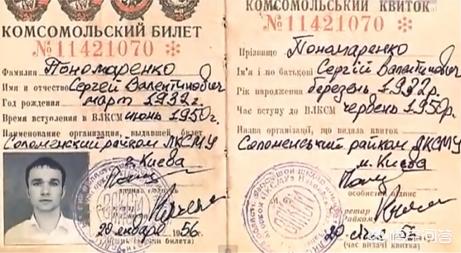 КОМСОМОЛЬСКИЙ БИЛЕТ
№ 11421070 *
Фамилия Пономаренко
Имя и отчество Сергей Валентинович
Год рождения март 1932г.
Время вступления в ВЛКСМ июнь 1950г.
Наименование организации, выдавшей билет
Соломенский райком ЛКСМУ
г. Киева
личная подпись
28 января 1956 г.
КОМСОМОЛЬСЬКИЙ КВИТОК
№ 11421070 *
Прізвище Пономаренко
Ім'я і по батькові Сергій Валентинович
Рік народження березень 1932р.
Час вступу до ВЛКСМ червень 1950р.
Назва організації, що видала квиток
Соломенський райком ЛКСМУ
м. Києва
особистий підпис
(час видачі квитка)